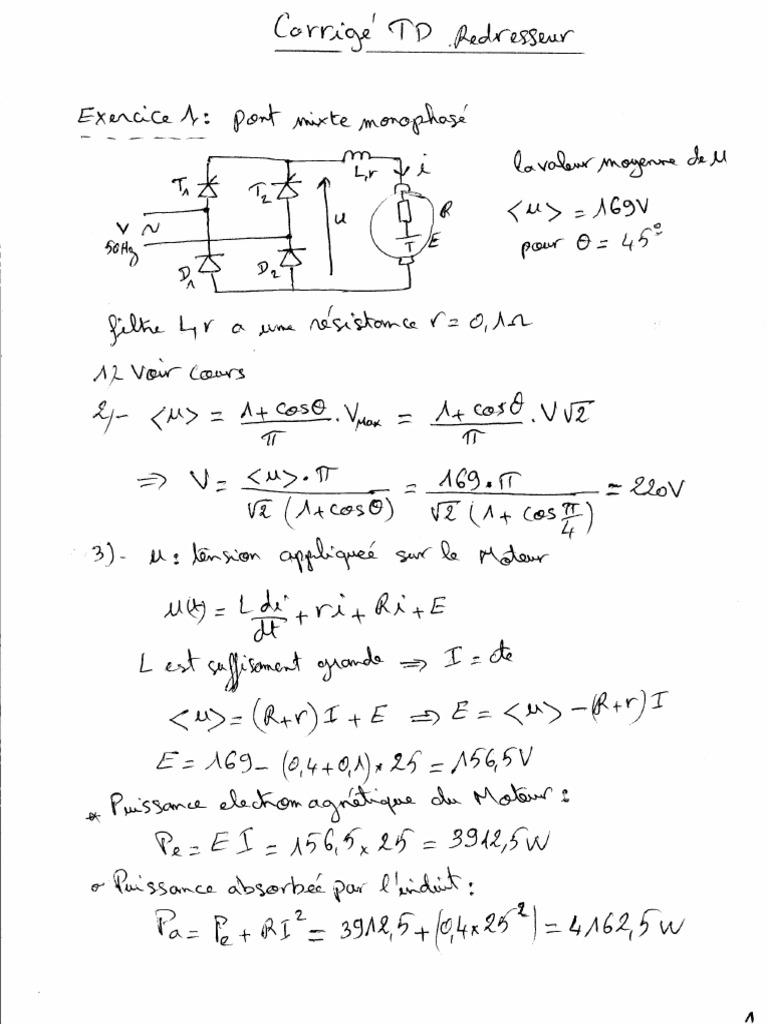 Corrigé TD Redresseur
Exercice 1: pont mixte monophasé
T1
T2
L,r
i
u
V ~
50Hz
D1
D2
R
E
T
la valeur moyenne de u
<u> = 169V
pour θ = 45°
filtre L,r a une résistance r = 0,1Ω
1) Voir cours
2)- <u> = (1+cosθ)/π . VMax = (1+cosθ)/π . V√2
⇒ V = <u>.π / √2(1+cosθ) = 169.π / √2(1+cos π/4) = 220V
3)- u : tension appliqueé sur le Moteur
u(t) = L di/dt + ri + Ri + E
L est suffisament grande ⇒ I = cte
<u> = (R+r)I + E ⇒ E = <u> - (R+r)I
E = 169 - (0,4+0,1)*25 = 156,5V
* Puissance electromagnétique du Moteur :
Pe = E I = 156,5 x 25 = 3912,5W
o Puissance absorbeé par l'induit :
Pa = Pe + RI² = 3912,5 + (0,4x25²) = 4162,5W
1